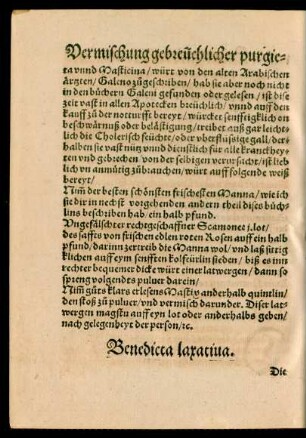 Vermischung gebreüchlicher purgie-
ra vnnd Masticina / würt von den alten Arabischen
ärtzten / Galeno zůgeschriben / hab sie aber noch nicht
in den büchern Galeni gefunden oder gelesen / ist diser
zeit vast in allen Apotecken breüchlich / vnnd auff den
kauff zů der notturfft bereyt / würcket senfftigklich on
beschwärnuß oder belästigung / treibet auß gar leicht-
lich die Cholerisch feüchte / oder überflüssige gall / der-
halben sie vast nütz vnnd dienstlich für alle kranckhey-
ten vnd gebrechen / von der selbigen verursacht / ist lieb-
lich vñ anmůtig zůbrauchen / würt auff folgende weiß
bereyt /
Nim̃ der besten schönsten frischesten Manna / wie ich
sie dir in nechst vorgehenden andern theil dises büch-
lins beschriben hab / ein halb pfund.
Vngefälschter rechtgeschaffner Scamonei j. lot /
des saffts von frischen edlen roten Rosen auff ein halb
pfund, darinn zertreib die Manna wol / vnd laß sittig
klichen auff eym senfften kolfeürlin sieden / biß es inn
rechter bequemer dicke würt einer latwergen / dann so
spreng volgendts puluer darein /
Nim̃ gůts klars erlesens Mastix anderhalb quintlin /
den stoß zů puluer / vnd vermisch darunder. Diser lat-
wergen magstu auff eyn lot oder anderhalbs geben /
nach gelegenheyt der person / ⁊c.
Benedicta laxatiua.
Die